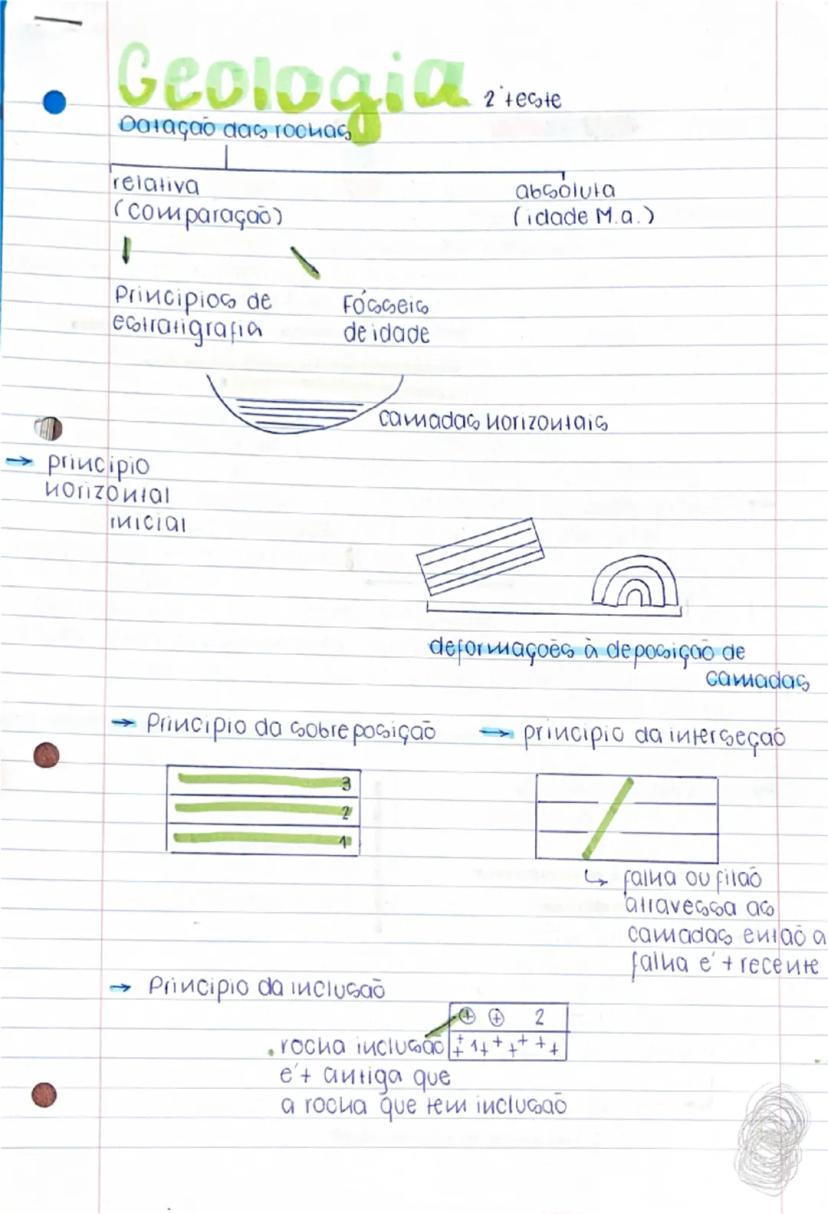 Geologia 2º teste
Datação das rochas
relativa absoluta
(comparação) (idade M.a.)
Principios de Fósseis
estratigrafia de idade
camadas horizontais
→ principio
horizontal
inicial
deformações à deposição de
camadas
→ Principio da sobreposição → principio da interseção
3
2
1
↳ falha ou filão
atravessa as
camadas então a
falha é + recente
→ Principio da inclusão
+ + 2
. rocha inclusão + 1 + + + + + +
é + antiga que
a rocha que tem inclusão